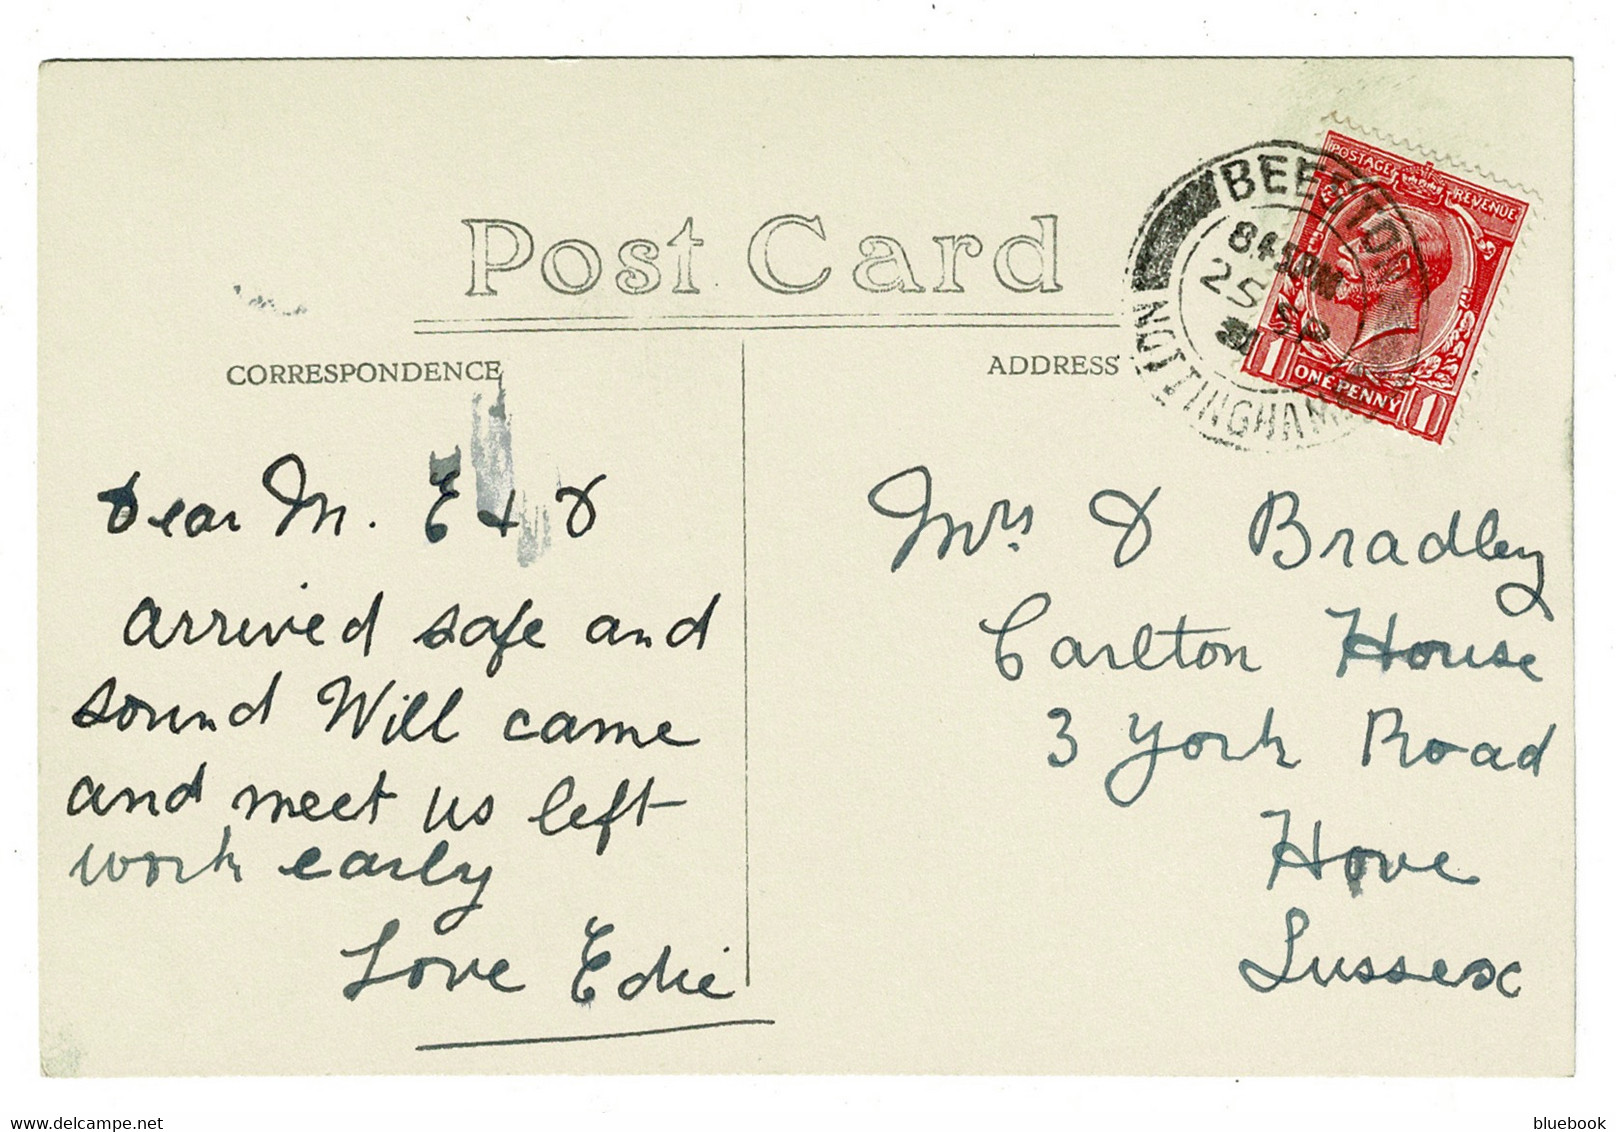 Post Card
CORRESPONDENCE
ADDRESS
POSTAGE REVENUE
1 ONE PENNY 1
BEESTON
8 45 PM
25 SP
NOTTINGHAM
Dear M. E & D
arrived safe and
sound Will came
and meet us left
work early
Love Edie
Mrs D Bradley
Carlton House
3 York Road
Hove
Sussex
delcampe.net
bluebook